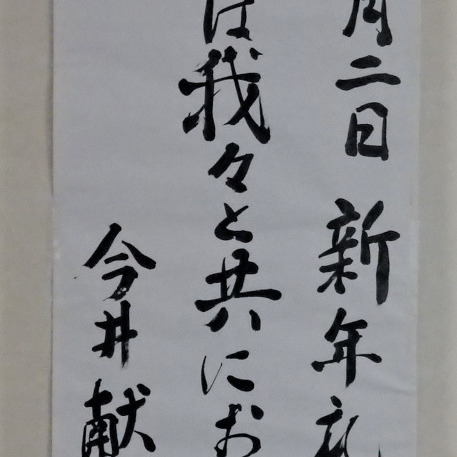 月二日 新年礼
は我々と共にお
今井献